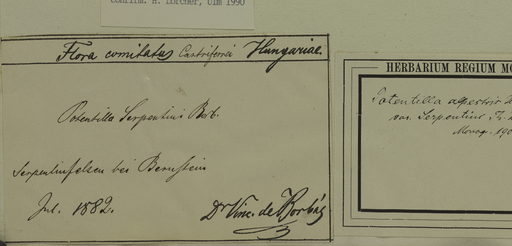 Confirm. H. Lorcher, Ulm 1990
Flora comitatus Castriferrei Hungariae.
Potentilla Serpentini Borb.
Serpentinfelsen bei Bernstein
Jul. 1882. Dr Vinc. de Borbás
HERBARIUM REGIUM MO
Potentilla
var. Serpentini Th.
Monog. 190